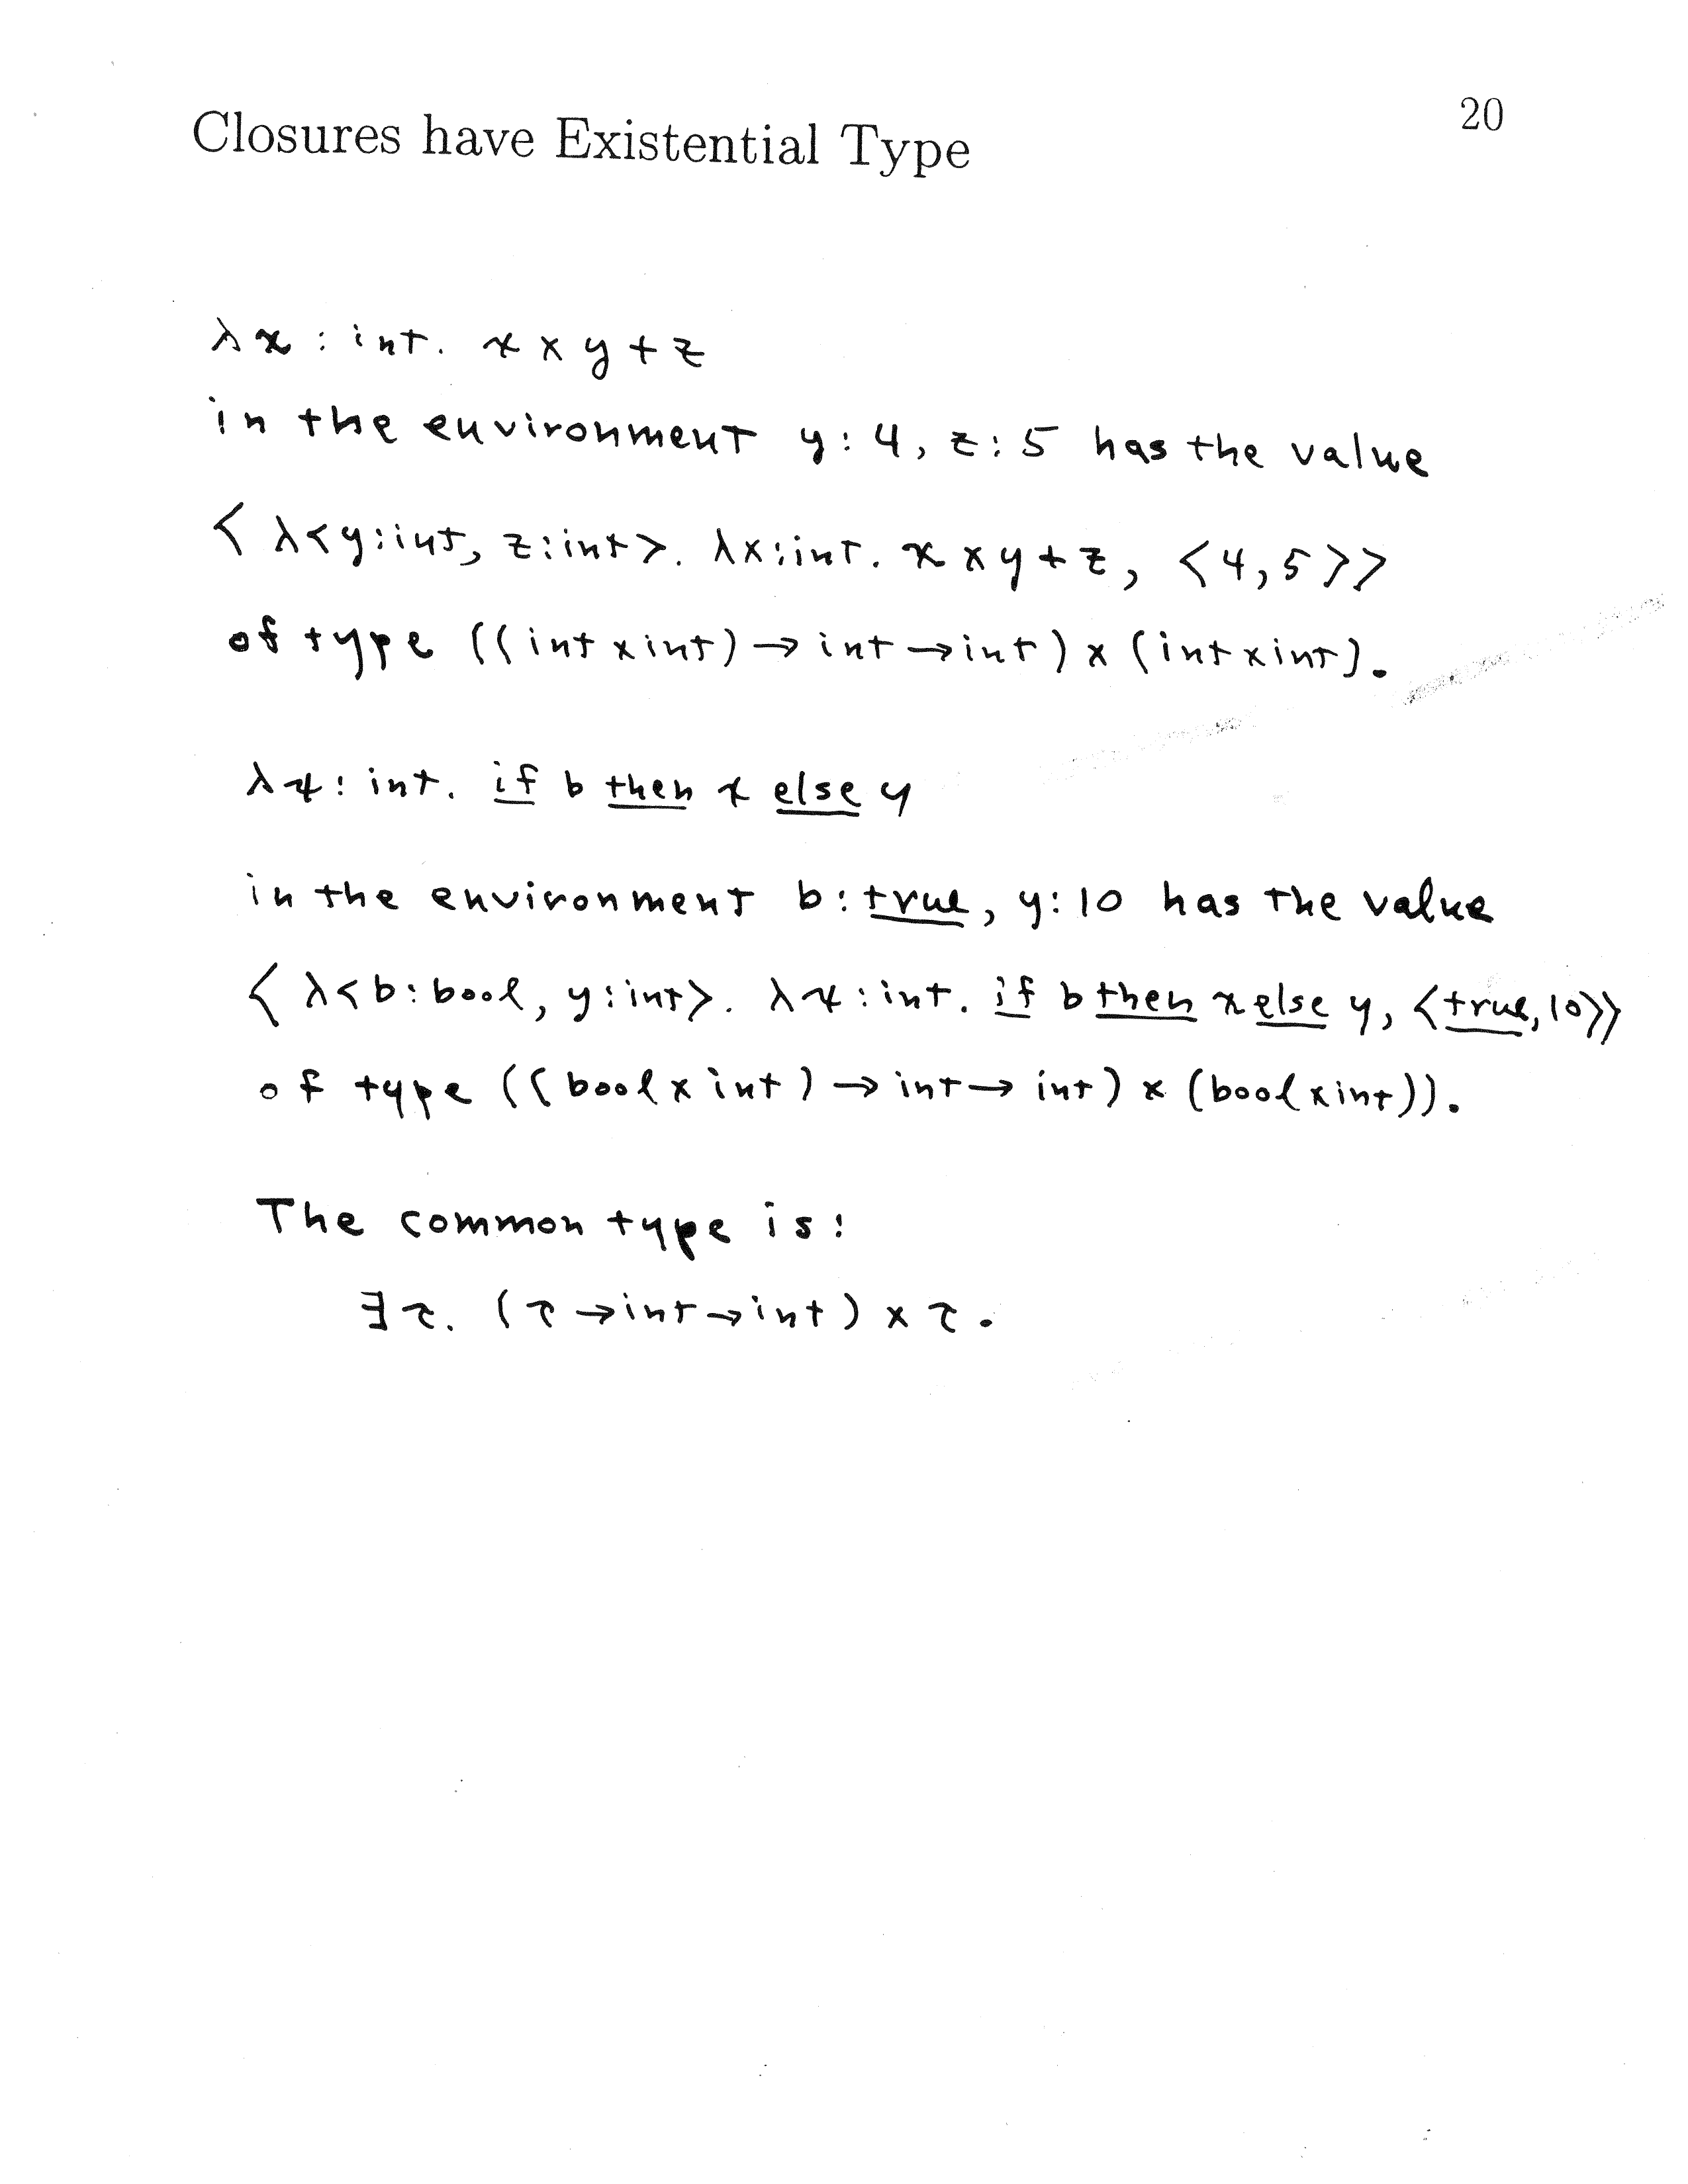 Closures have Existential Type
20
λx : int. x × y + z
in the environment y : 4, z : 5 has the value
⟨ λ<y:int, z:int>. λx:int. x × y + z, ⟨4,5⟩⟩
of type ((int × int) → int → int) × (int × int).
λx : int. if b then x else y
in the environment b : true, y : 10 has the value
⟨ λ<b : bool, y : int>. λx : int. if b then x else y, ⟨true, 10⟩⟩
of type ((bool × int) → int → int) × (bool × int)).
The common type is :
∃τ. (τ → int → int) × τ.